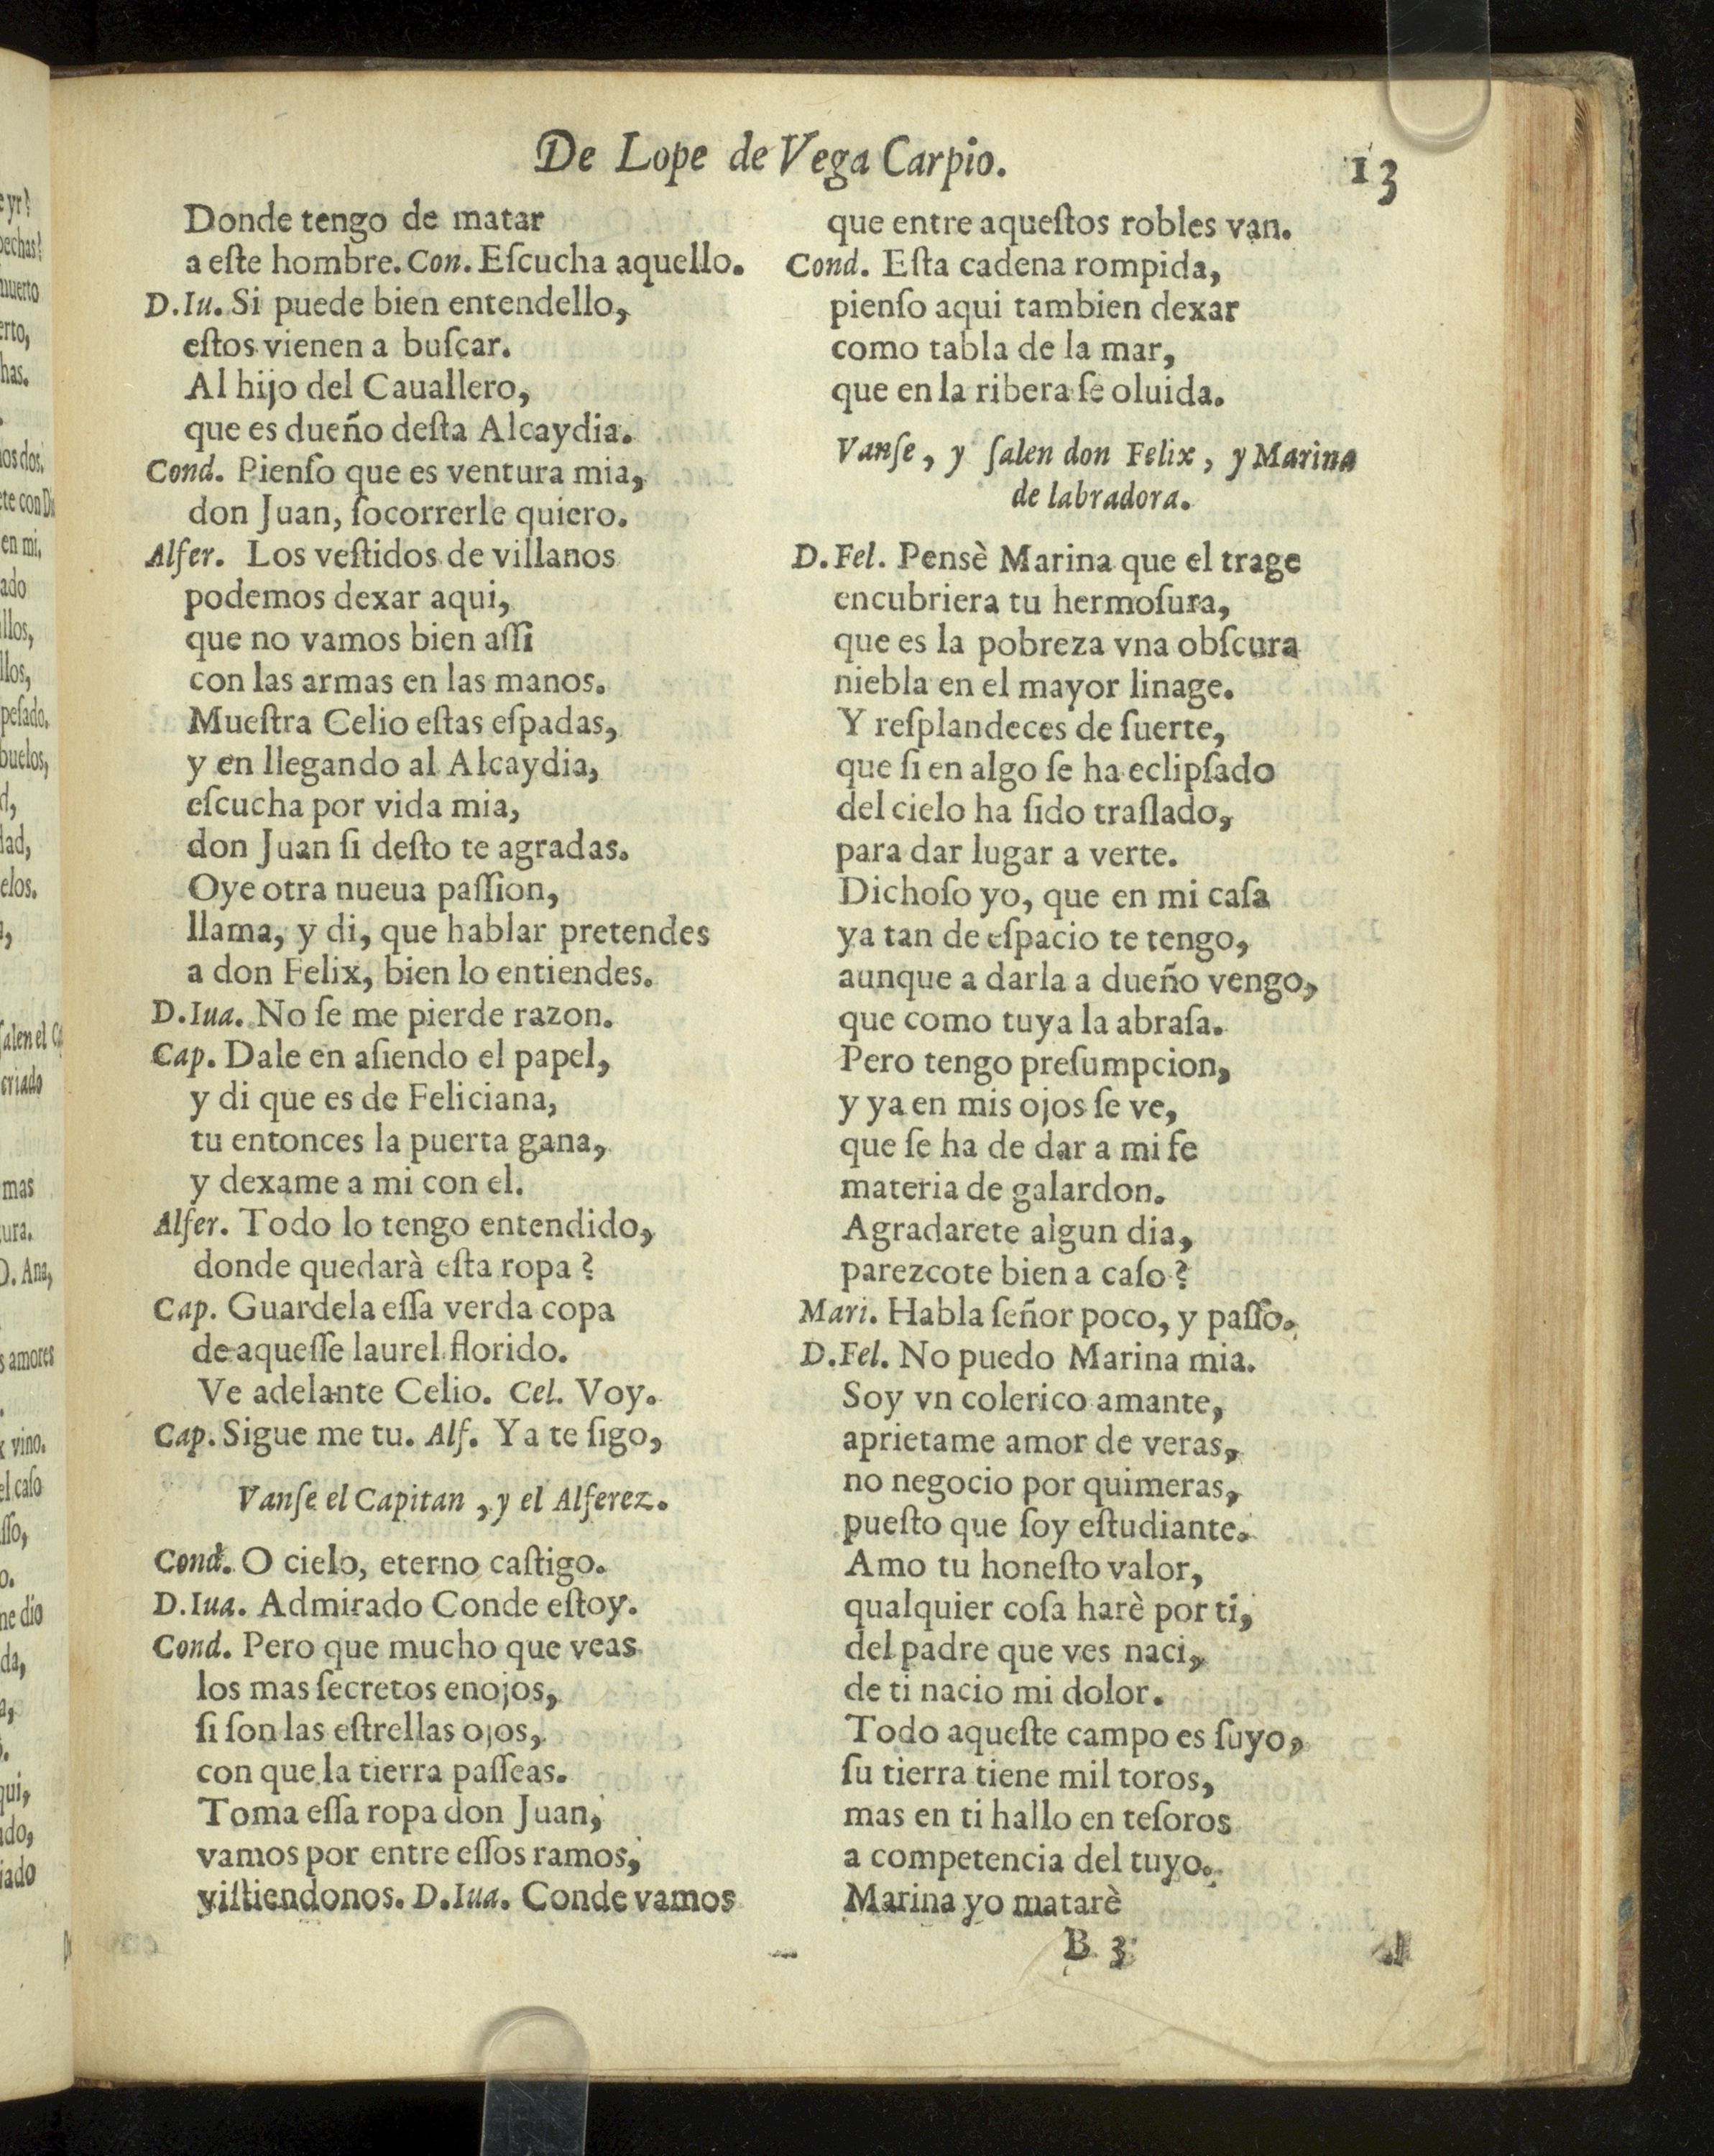 De Lope de Vega Carpio.
13
Donde tengo de matar
a eſte hombre. Con. Eſcucha aquello.
D.Iu. Si puede bien entendello,
eſtos vienen a buſcar.
Al hijo del Cauallero,
que es dueño deſta Alcaydia.
Cond. Pienſo que es ventura mia,
don Juan, ſocorrerle quiero.
Alfer. Los veſtidos de villanos
podemos dexar aqui,
que no vamos bien aſſi
con las armas en las manos.
Mueſtra Celio eſtas eſpadas,
y en llegando al Alcaydia,
eſcucha por vida mia,
don Juan ſi deſto te agradas.
Oye otra nueua paſſion,
llama, y di, que hablar pretendes
a don Felix, bien lo entiendes.
D.Iua. No ſe me pierde razon.
Cap. Dale en aſiendo el papel,
y di que es de Feliciana,
tu entonces la puerta gana,
y dexame a mi con el.
Alfer. Todo lo tengo entendido,
donde quedarà eſta ropa?
Cap. Guardela eſſa verda copa
de aqueſſe laurel florido.
Ve adelante Celio. Cel. Voy.
Cap. Sigue me tu. Alf. Ya te ſigo,
Vanſe el Capitan, y el Alferez.
Cond. O cielo, eterno caſtigo.
D.Iua. Admirado Conde eſtoy.
Cond. Pero que mucho que veas
los mas ſecretos enojos,
ſi ſon las eſtrellas ojos,
con que la tierra paſſeas.
Toma eſſa ropa don Juan,
vamos por entre eſſos ramos,
viſtiendonos. D.Iua. Conde vamos
que entre aqueſtos robles van.
Cond. Eſta cadena rompida,
pienſo aqui tambien dexar
como tabla de la mar,
que en la ribera ſe oluida.
Vanſe, y ſalen don Felix, y Marina
de labradora.
D.Fel. Pensè Marina que el trage
encubriera tu hermoſura,
que es la pobreza vna obſcura
niebla en el mayor linage.
Y reſplandeces de ſuerte,
que ſi en algo ſe ha eclipſado
del cielo ha ſido traſlado,
para dar lugar a verte.
Dichoſo yo, que en mi caſa
ya tan de eſpacio te tengo,
aunque a darla a dueño vengo,
que como tuya la abraſa.
Pero tengo preſumpcion,
y ya en mis ojos ſe ve,
que ſe ha de dar a mi fe
materia de galardon.
Agradarete algun dia,
parezcote bien a caſo?
Mari. Habla ſeñor poco, y paſſo.
D.Fel. No puedo Marina mia.
Soy vn colerico amante,
aprietame amor de veras,
no negocio por quimeras,
pueſto que ſoy eſtudiante.
Amo tu honeſto valor,
qualquier coſa harè por ti,
del padre que ves naci,
de ti nacio mi dolor.
Todo aqueſte campo es ſuyo,
ſu tierra tiene mil toros,
mas en ti hallo en teſoros
a competencia del tuyo.
Marina yo matarè
B 3